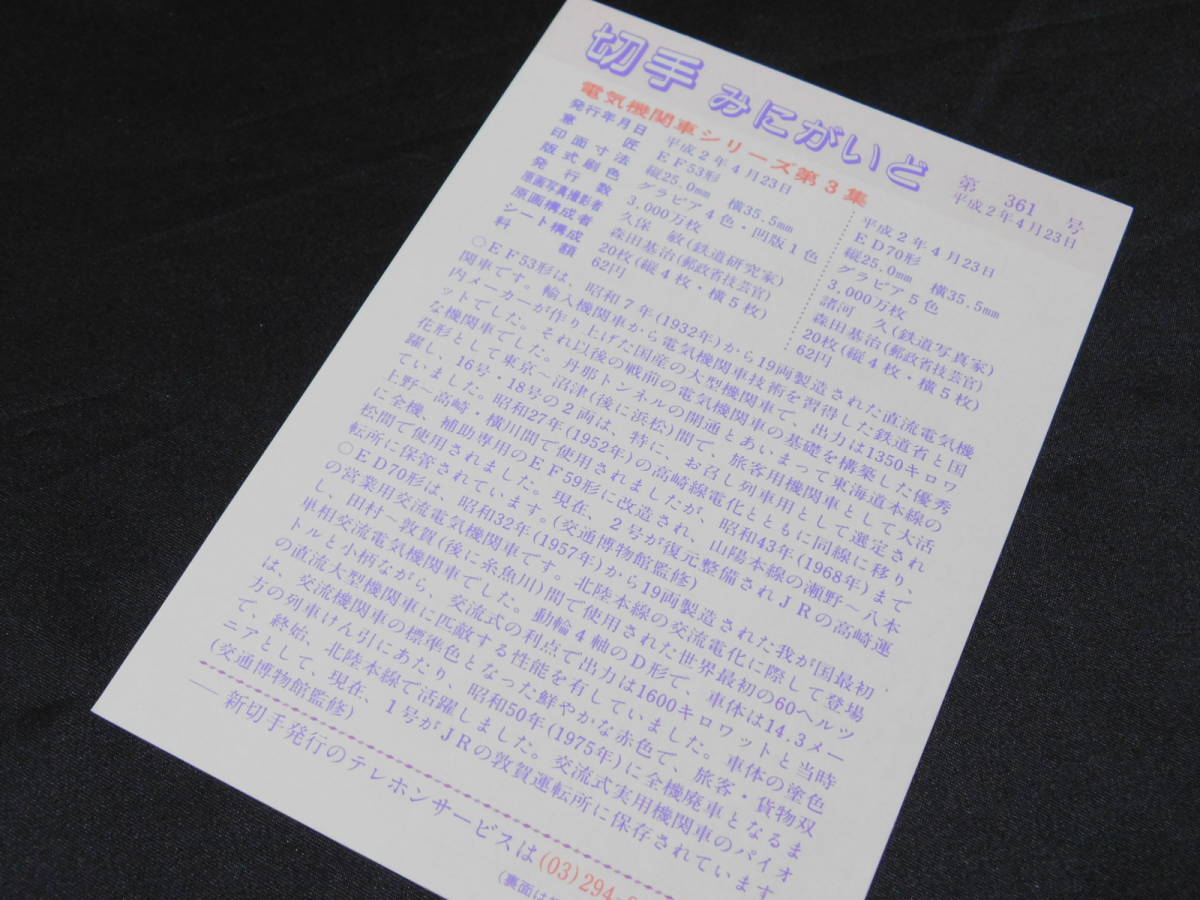 切手 みにがいど
第 361 号
平成2年4月23日
電気機関車シリーズ第3集
発行年月日 平成2年4月23日 平成2年4月23日
意匠 EF53形 ED70形
印面寸法 縦25.0mm 横35.5mm 縦25.0mm 横35.5mm
版式刷色 グラビア4色・凹版1色 グラビア5色
発行数 3,000万枚 3,000万枚
原画写真撮影者 久保 敏(鉄道研究家) 諸河 久(鉄道写真家)
原画構成者 森田基治(郵政省技芸官) 森田基治(郵政省技芸官)
シート構成 20枚(縦4枚・横5枚) 20枚(縦4枚・横5枚)
料額 62円 62円
○EF53形は、昭和7年(1932年)から19両製造された直流電気機
関車です。輸入機関車から電気機関車技術を習得した鉄道省と国
内メーカーが作り上げた国産の大型機関車で、出力は1350キロワ
ットでした。それ以後の戦前の電気機関車の基礎を構築した優秀
な機関車でした。丹那トンネルの開通とあいまって東海道本線の
花形として東京〜沼津(後に浜松)間で、旅客用機関車として大活
躍し、16号・18号の2両は、特に、お召し列車用として選定され
ていました。昭和27年(1952年)の高崎線電化とともに同線に移り、
上野〜高崎・横川間で使用されましたが、昭和43年(1968年)まで
に全機、補助専用のEF59形に改造され、山陽本線の瀬野〜八本
松間で使用されました。現在、2号が復元整備されJRの高崎運
転所に保管されています。(交通博物館監修)
○ED70形は、昭和32年(1957年)から19両製造された我が国最初
の営業用交流電気機関車です。北陸本線の交流電化に際して登場
し、田村〜敦賀(後に糸魚川)間で使用された世界最初の60ヘルツ
単相交流電気機関車でした。動輪4軸のD形で、車体は14.3メー
トルと小柄ながら、交流式の利点で出力は1600キロワットと当時
の直流大型機関車に匹敵する性能を有していました。車体の塗色
は、交流機関車の標準色となった鮮やかな赤色で、旅客・貨物双
方の列車けん引にあたり、昭和50年(1975年)に全機廃車となるま
で、終始、北陸本線で活躍しました。交流式実用機関車のパイオ
ニアとして、現在、1号がJRの敦賀運転所に保存されています
(交通博物館監修)
新切手発行のテレホンサービスは(03)294-
(裏面は